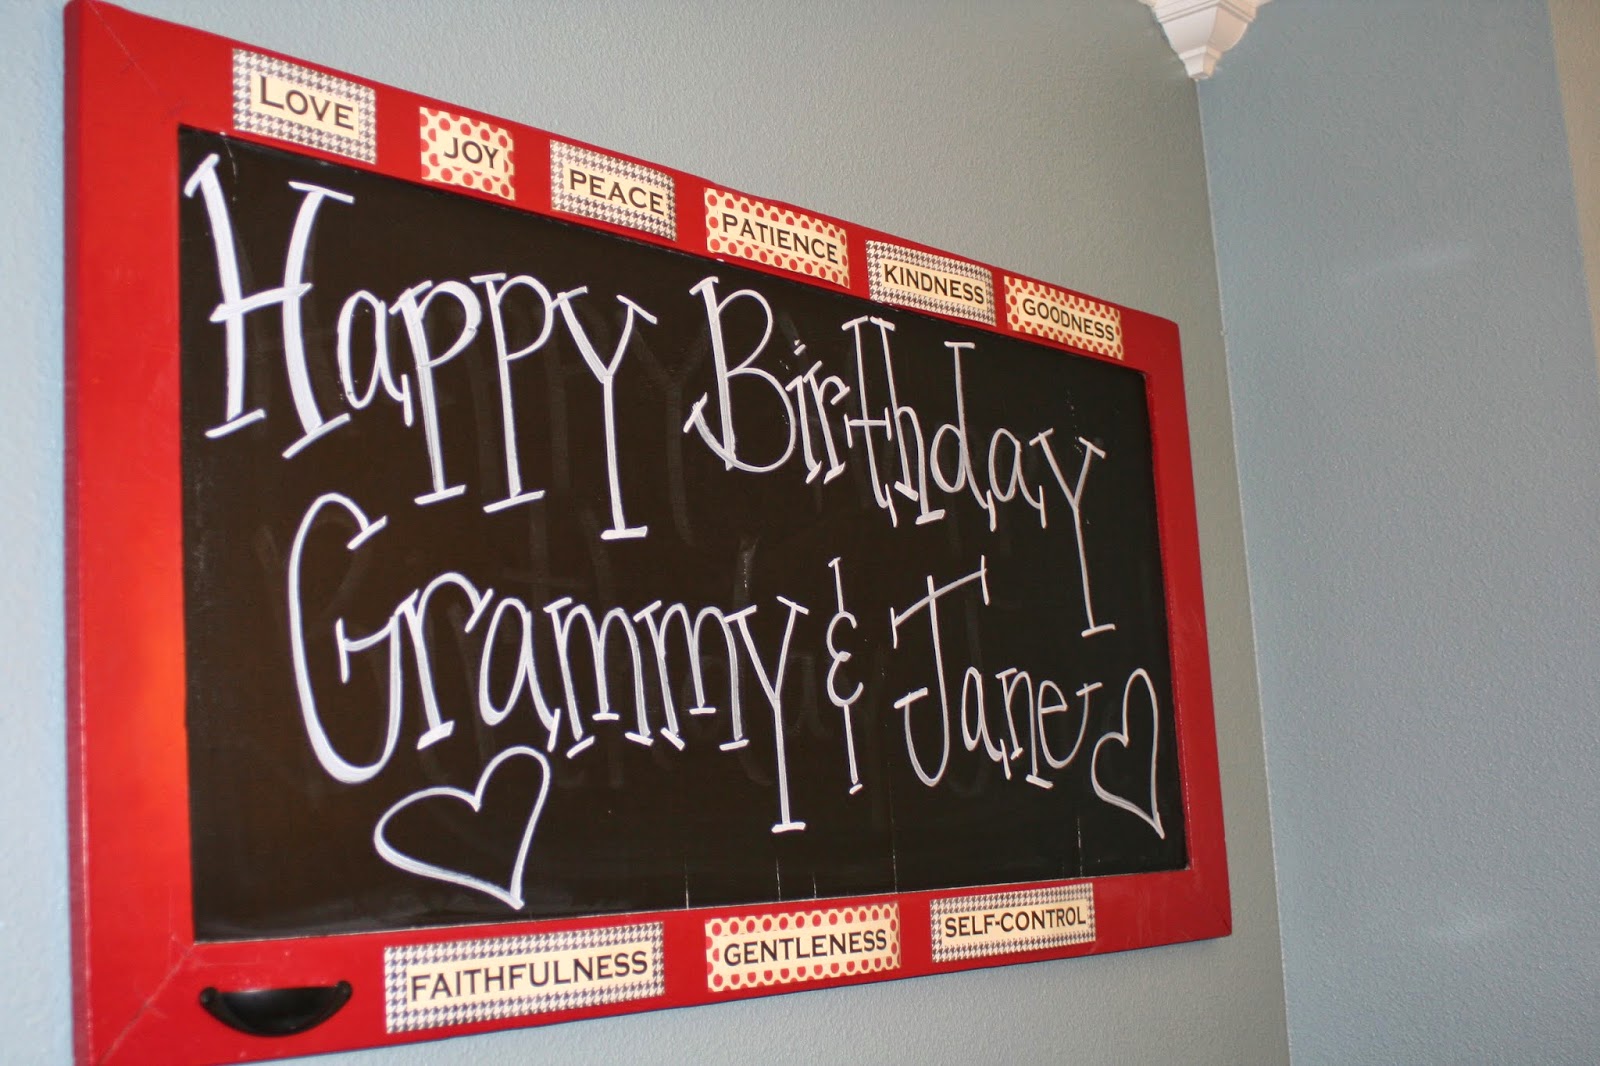 LOVE JOY PEACE PATIENCE KINDNESS GOODNESS
Happy Birthday
Grammy & Jane
FAITHFULNESS GENTLENESS SELF-CONTROL